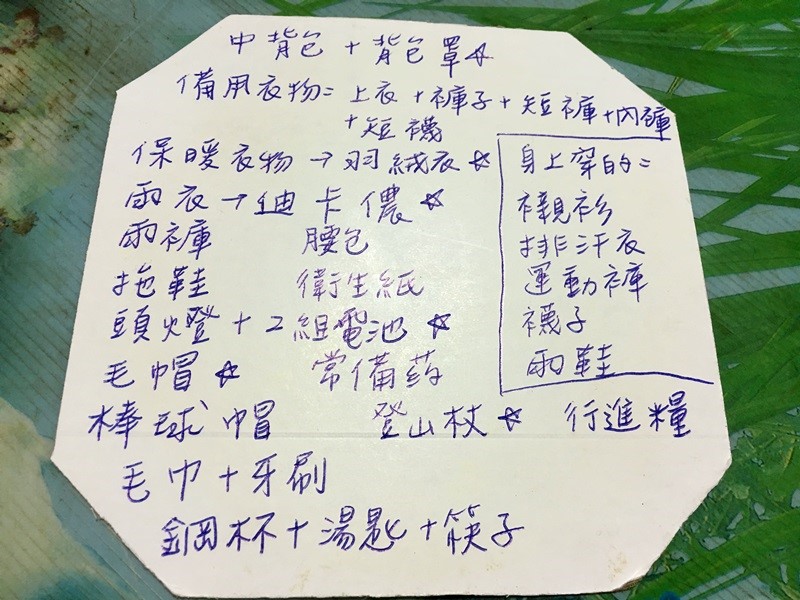 中背包 + 背包罩☆
備用衣物= 上衣 + 褲子 + 短褲 + 內褲
+ 短襪
保暖衣物 → 羽絨衣 ☆
雨衣 → 迪卡儂 ☆
雨褲 腰包
拖鞋 衛生紙
頭燈 + 2組電池 ☆
毛帽 ☆ 常備药
棒球帽 登山杖 ☆ 行進糧
毛巾 + 牙刷
鋼杯 + 湯匙 + 筷子
身上穿的=
襯衫
排汗衣
運動褲
襪子
雨鞋